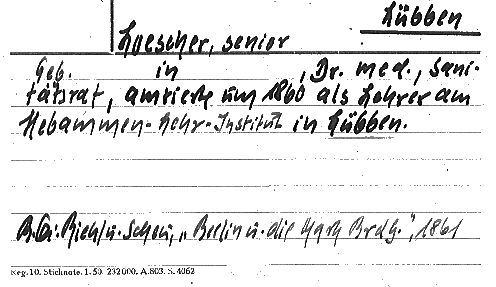 Lübben
Loescher, senior
Geb. in , Dr. med., Sani-
tätsrat, amtierte um 1860 als Lehrer am
Hebammen-Lehr-Institut in Lübben.
u. "Berlin u. die Mark Brdg.", 1861
Reg. 10. Sticknote. 1. 50. 232000. A. 803. S. 4062